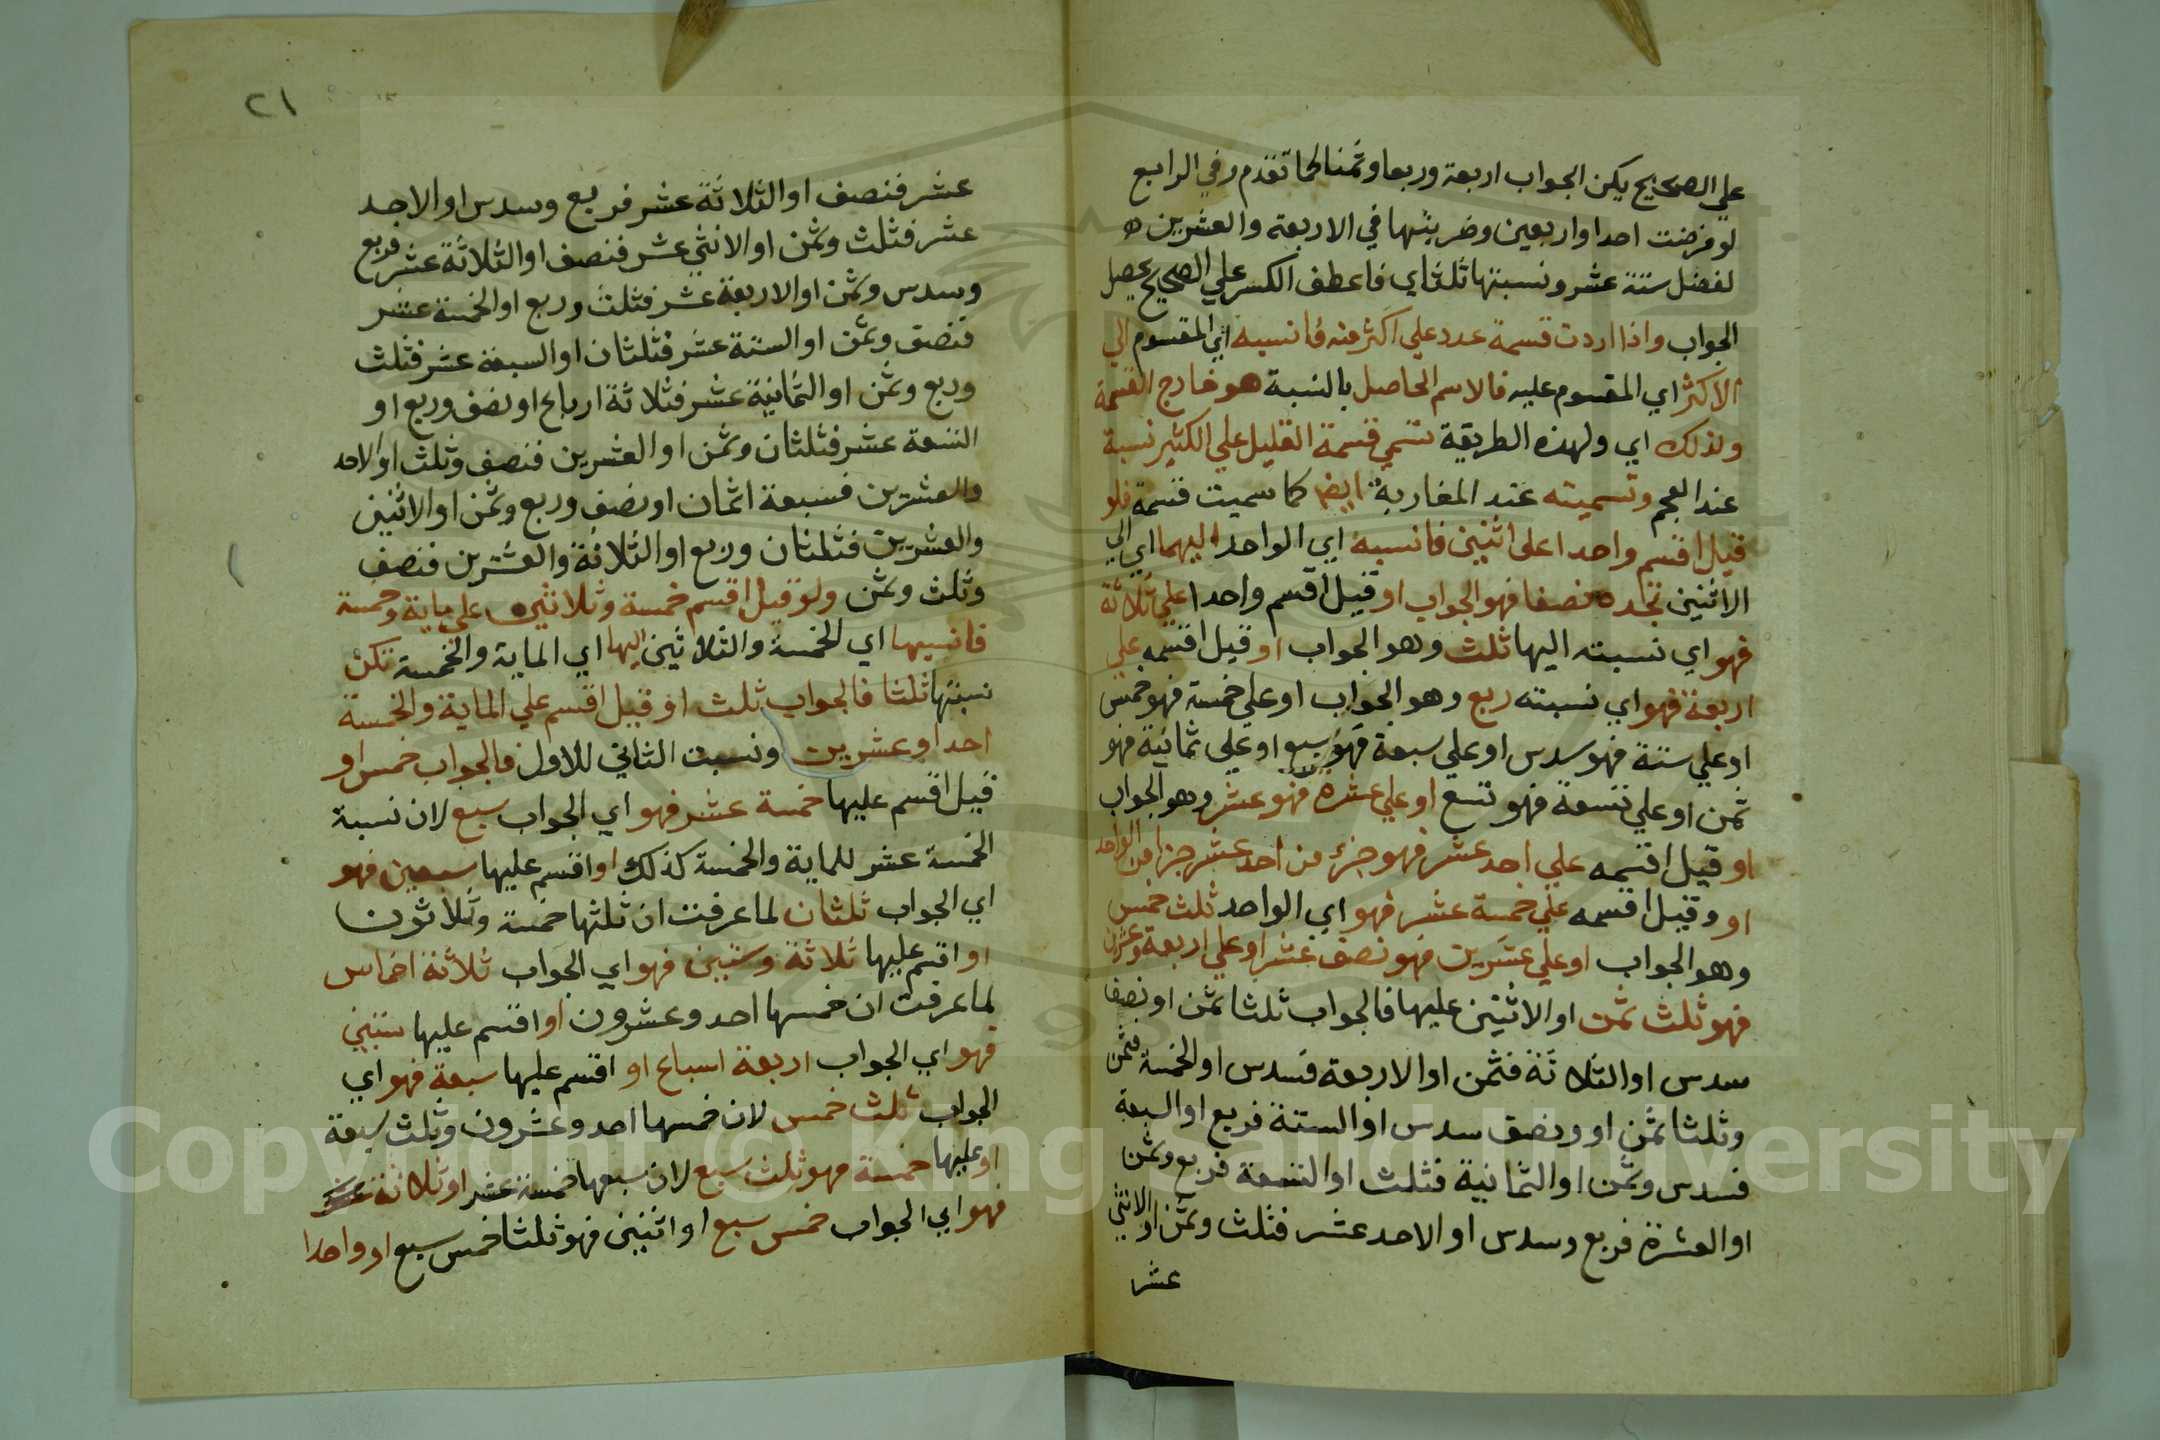 علي الصحيح يكن الجواب اربعة وربعا وثمنا لما تقدم وفي الرابع
لو فرضت احدا واربعين وضربتها في الاربعة والعشرين
لفضل ستة عشر ونسبتها ثلثاي فاعطف الكسر علي الصحيح يحصل
الجواب واذا اردت قسمة عدد علي اكثر منه فانسبه اي المقسوم الي
الاكثر اي المقسوم عليه فالاسم الحاصل بالنسبة هو خارج القسمة
ولذلك اي ولهذه الطريقة تسمي قسمة القليل علي الكثير نسبة
عند العجم وتسميته عند المغاربة ايضا كما سميت قسمة فلو
قيل اقسم واحدا على اثنين فانسبه اي الواحد اليهما اي الي
الاثنين تجده نصفا فهو الجواب او قيل اقسم واحدا علي ثلاثة
فهو اي نسبته اليها ثلث وهو الجواب او قيل اقسمه علي
اربعة فهو اي نسبته ربع وهو الجواب او علي خمسة فهو خمس
او علي ستة فهو سدس او علي سبعة فهو سبع او علي ثمانية فهو
ثمن او علي تسعة فهو تسع او علي عشرة فهو عشر وهو الجواب
او قيل اقسمه علي احد عشر فهو جزء من احد عشر جزا من الواحد
او وقيل اقسمه علي خمسة عشر فهو اي الواحد ثلث خمس
وهو الجواب او علي عشرين فهو نصف عشر او علي اربعة وعشرين
فهو ثلث ثمن او الاثنين عليها فالجواب ثلثا ثمن او نصف
سدس او الثلاثة فثمن او الاربعة فسدس او الخمسة فثمن
وثلثا ثمن او ونصف سدس او الستة فربع او السبعة
فسدس وثمن او الثمانية فثلث او التسعة فربع وثمن
او العشرة فربع وسدس او الاحد عشر فثلث وثمن او الاثني
عشر
٢١
عشر فنصف او الثلاثة عشر فربع وسدس او الاحد
عشر فثلث وثمن او الاثني عشر فنصف او الثلاثة عشر فربع
وسدس وثمن او الاربعة عشر فثلث وربع او الخمسة عشر
فنصف وثمن او الستة عشر فثلثان او السبعة عشر فثلث
وربع وثمن او الثمانية عشر فثلاثة ارباع او نصف وربع او
التسعة عشر فثلثان وثمن او العشرين فنصف وثلث او الاحد
والعشرين فسبعة اثمان او نصف وربع وثمن او الاثنين
والعشرين فثلثان وربع او الثلاثة والعشرين فنصف
وثلث وثمن ولو قيل اقسم خمسة وثلاثين علي ماية وخمسة
فانسبها اي الخمسة والثلاثين اليها اي الماية والخمسة تكن
نسبتها ثلثا فالجواب ثلث او قيل اقسم علي الماية والخمسة
احدا وعشرين ونسبت الثاني للاول فالجواب خمس او
قيل اقسم عليها خمسة عشر فهو اي الجواب سبع لان نسبة
الخمسة عشر للماية والخمسة كذلك او اقسم عليها سبعين فهو
اي الجواب ثلثان لما عرفت ان ثلثها خمسة وثلاثون
او اقسم عليها ثلاثة وستين فهو اي الجواب ثلاثة اخماس
لما عرفت ان خمسها احد وعشرون او اقسم عليها ستين
فهو اي الجواب اربعة اسباع او اقسم عليها سبعة فهو اي
الجواب ثلث خمس لان خمسها احد وعشرون وثلث سبعة
او عليها خمسة فهو ثلث سبع لان سبعها خمسة عشر او ثلاثة
فهو اي الجواب خمس سبع او اثنين فهو ثلثا خمس سبع او واحدا
Copyright © King Saud University